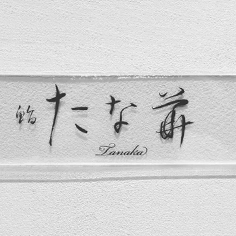 鮨 たな華
Tanaka